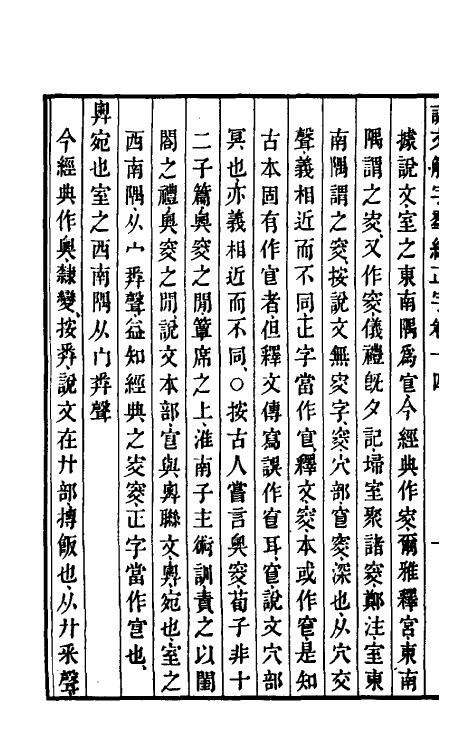 說文解字羣經正字卷十四　一
據說文室之東南隅為㝔今經典作宎爾雅釋宮東南
隅謂之宎又作窔儀禮旣夕記埽室聚諸窔鄭注室東
南隅謂之窔按說文無宎字窔穴部窅窔深也从穴交
聲義相近而不同正字當作㝔釋文窔本或作窅是知
古本固有作㝔者但釋文傳寫誤作窅耳窅說文穴部
冥也亦義相近而不同○按古人嘗言奧窔荀子非十
二子篇奧窔之閒簟席之上淮南子主術訓責之以閨
閤之禮奧窔之閒說文本部㝔與𡪿聯文𡪿宛也室之
西南隅从宀𢍏聲益知經典之宎窔正字當作㝔也
𡪿宛也室之西南隅从宀𢍏聲
今經典作奧隸變按𢍏說文在廾部摶飯也从廾釆聲